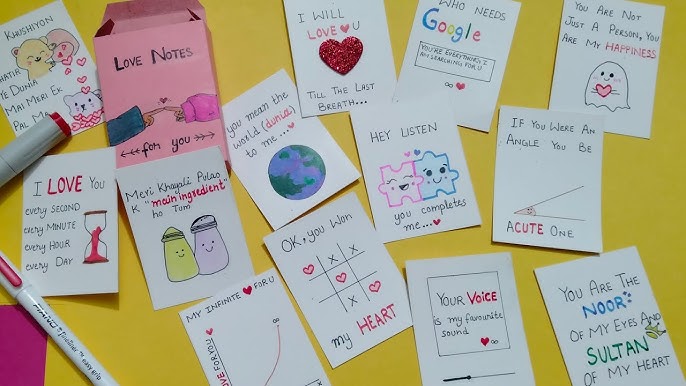 KHUSHIYON
KHATIR
DUNIA
MAI MERI EK
PAL
LOVE NOTES
for you
I WILL
LOVE U
TILL THE LAST
BREATH...
WHO NEEDS
Google
YOU'RE EVERYTHING I
AM SEARCHING FOR U
∞
YOU ARE NOT
JUST A PERSON, YOU
ARE MY HAPPINESS
you mean the
world (dunia)
to me...
HEY LISTEN
you completes
me...
IF YOU WERE AN
ANGLE YOU BE
ACUTE ONE
I LOVE YOU
every SECOND
every MINUTE
every HOUR
every DAY
Meri Khayali Pulao
K "main ingredient"
ho Tum
OK, you WON
X
X
X
my HEART
MY INFINITE FOR U
LOVE FOR YOU
YOUR VOICE
is my favourite
sound
∞
YOU ARE THE
NOOR
OF MY EYES AND
SULTAN
OF MY HEART